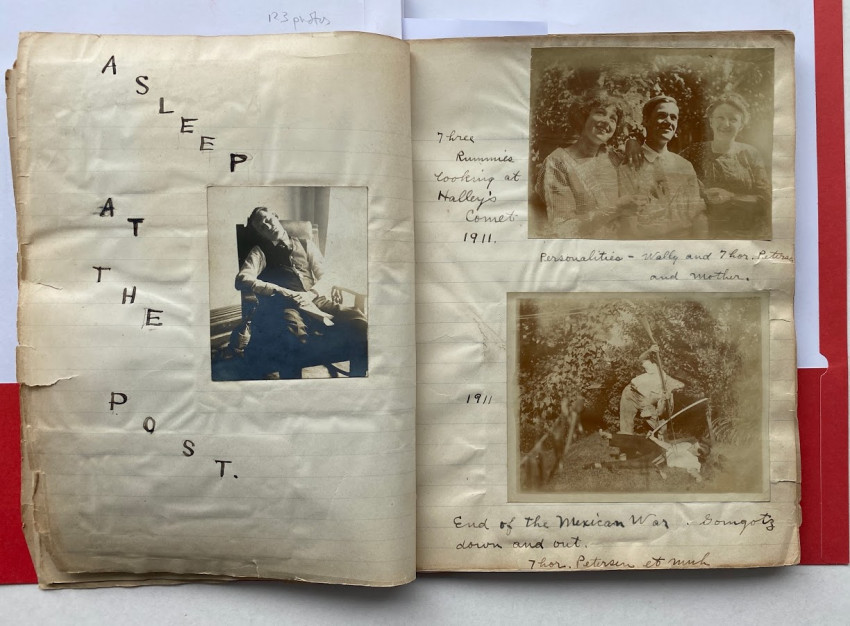 123 photos
ASLEEP
AT
THE
POST.
Three
Rummies
looking at
Halley's
Comet
1911.
Personalities - Wally and Thor. Petersen
and Mother.
1911
End of the Mexican War. Gomgotz
down and out.
Thor. Petersen et muh